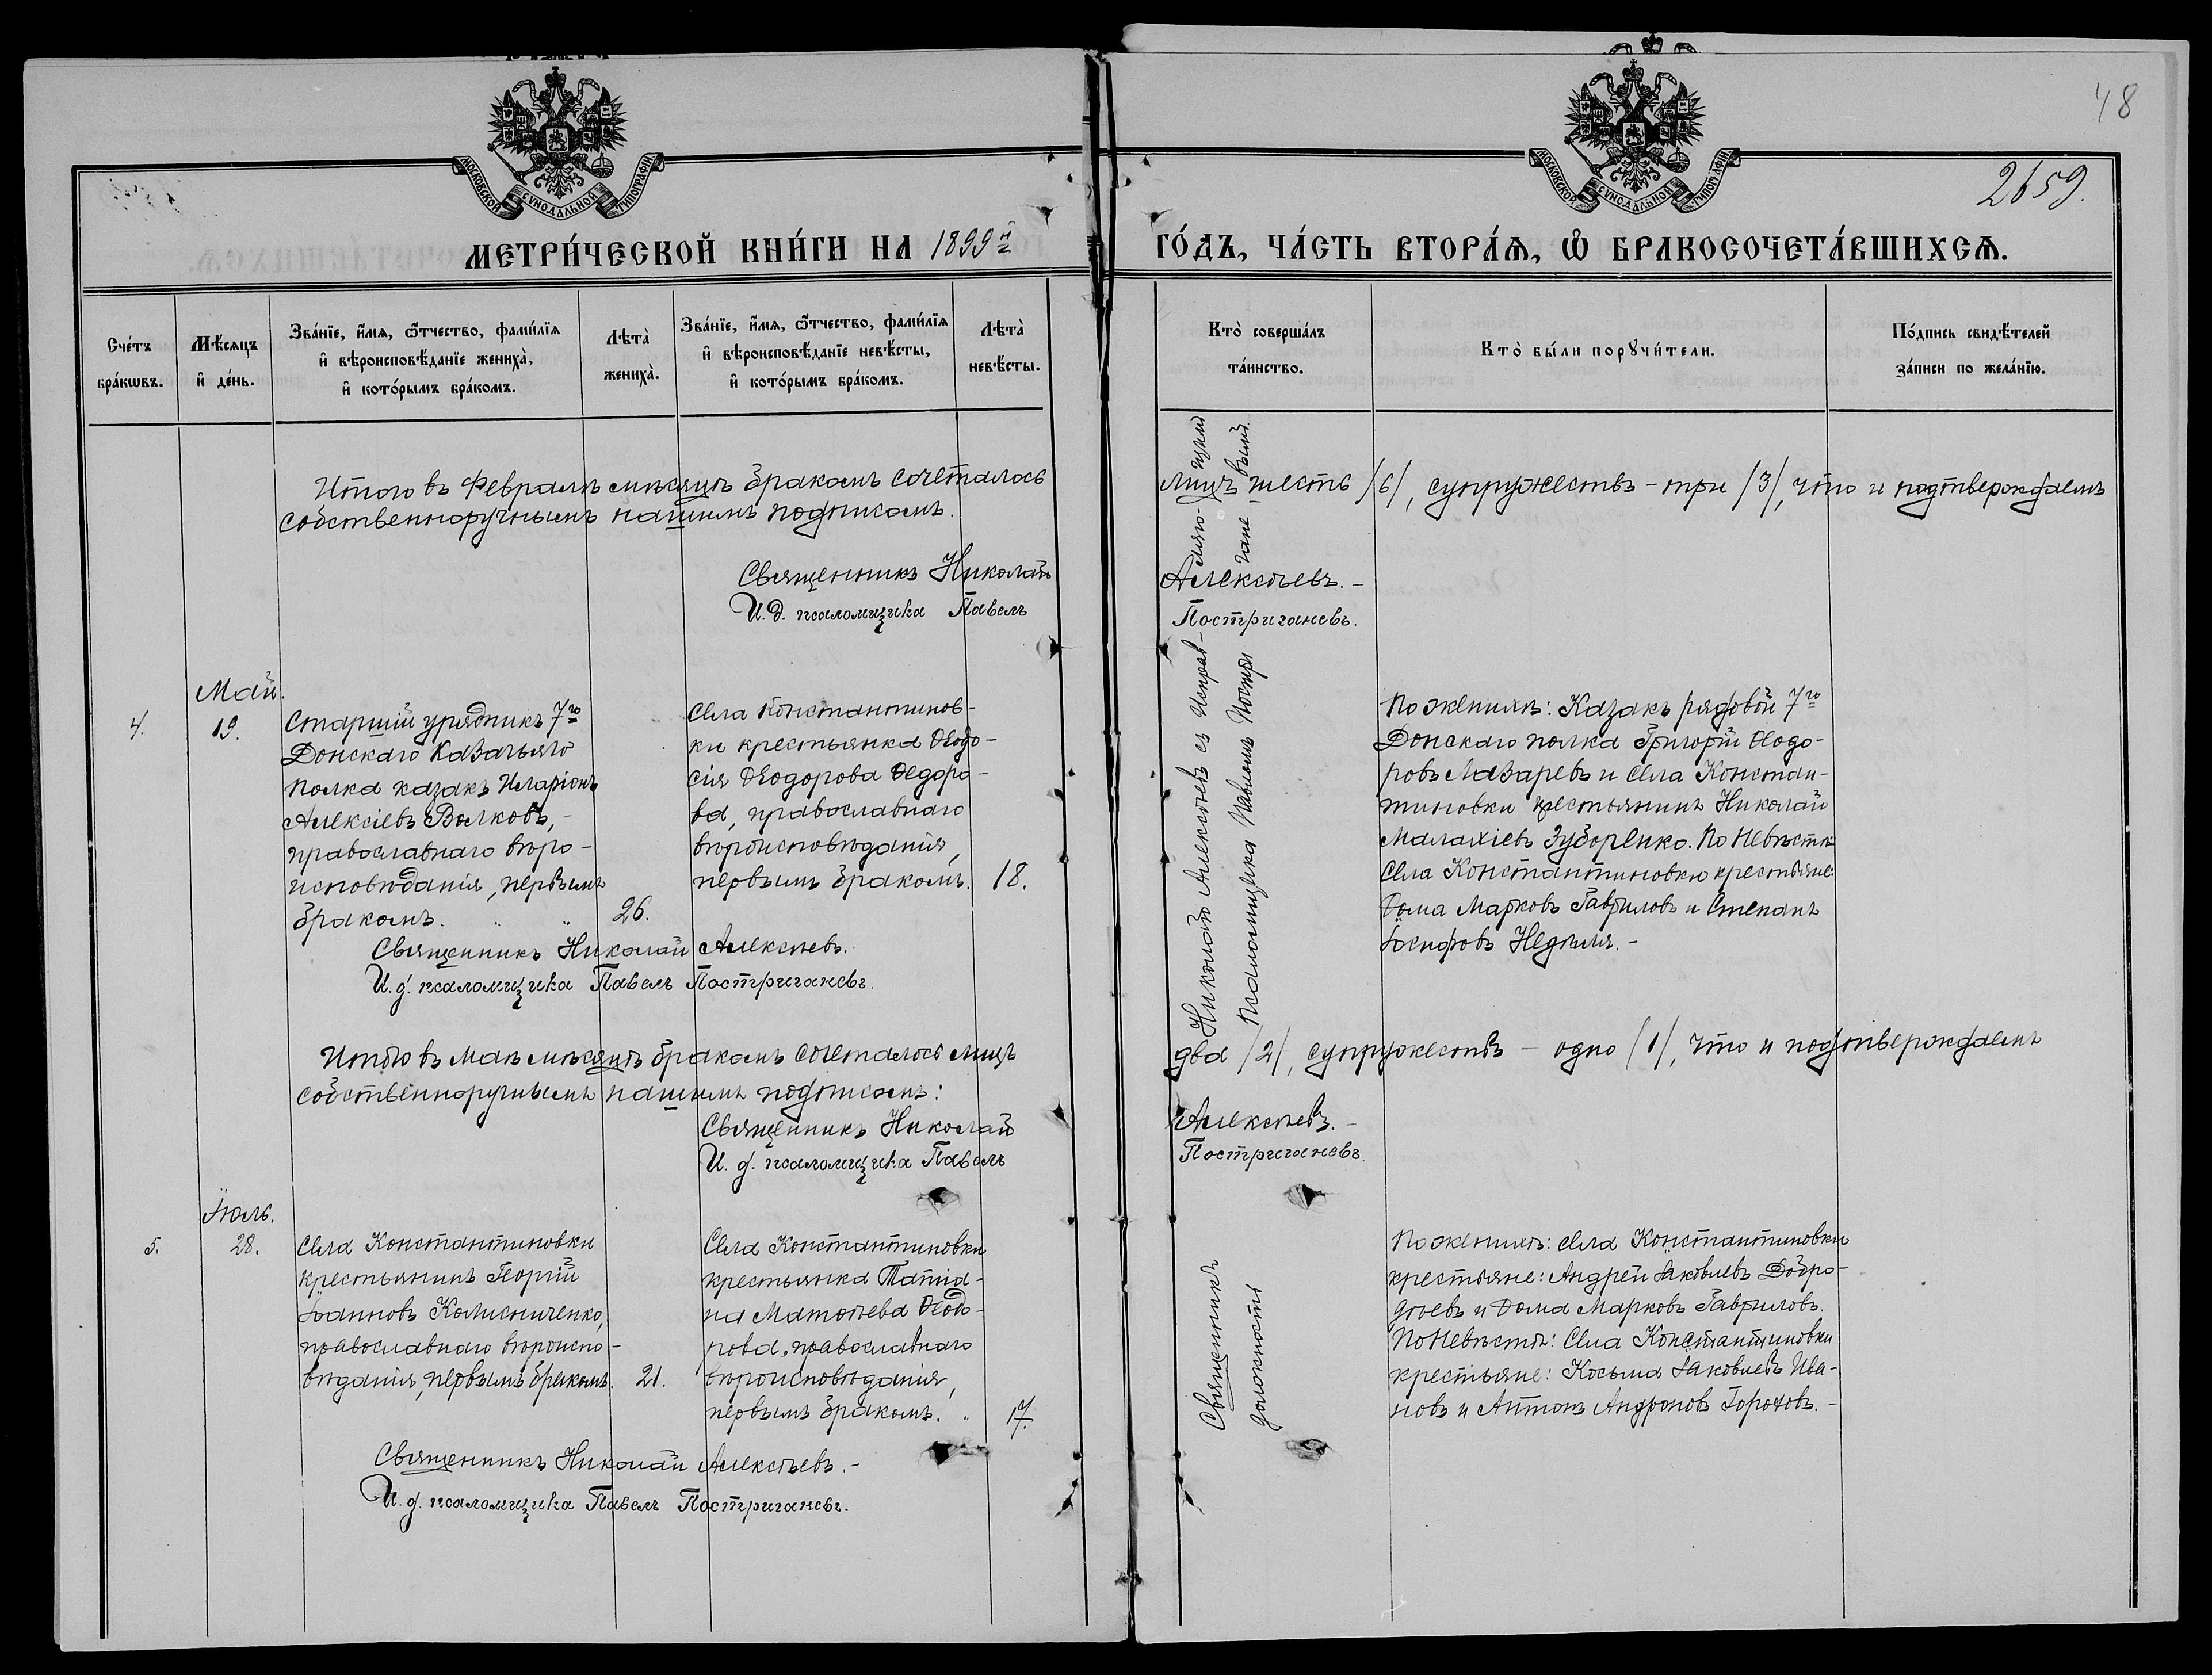 48
2659.
МОСКОВСКОЙ СѴНОДАЛЬНОЙ ТИПОГРАФІИ
МОСКОВСКОЙ СѴНОДАЛЬНОЙ ТИПОГРАФІИ
МЕТРИ́ЧЕСКОЙ КНИ́ГИ НА 1899й ГО́ДЪ, ЧА́СТЬ ВТОРА́Ѧ, Ѡ҆ БРАКОСОЧЕТА́ВШИХСѦ.
Сче́тъ
бра́кѡвъ.
Мѣ́сяцъ
и҆ де́нь.
Зва́нїе, и҆́мѧ, ѻ҆́тчество, фами́лїѧ
и҆ вѣроисповѣ́данїе жениха̀,
и҆ кото́рымъ бра́комъ.
Лѣта̀
жениха̀.
Зва́нїе, и҆́мѧ, ѻ҆́тчество, фами́лїѧ
и҆ вѣроисповѣ́данїе невѣ́сты,
и҆ кото́рымъ бра́комъ.
Лѣта̀
невѣ́сты.
Кто̀ соверша́лъ
та́инство.
Кто̀ бы́ли порꙋчи́тели.
По́дпись свидѣ́телей
за́писи по жела́нїю.
Итого въ Февралѣ мѣсяцѣ бракомъ сочеталось лицъ шесть /6/, супружествъ - три /3/, что и подтверждаемъ
собственноручнымъ нашимъ подписомъ.
Священникъ Николай Алексѣевъ. -
И. д. псаломщика Павелъ Постриганевъ.
Май.
4.
19.
Старшій урядникъ 7го
Донскаго Казачьяго
полка казакъ Иларіонъ
Алексіевъ Волковъ, -
православнаго вѣро-
исповѣданія, первымъ
бракомъ.
26.
Села Константинов-
ки крестьянка Ѳеодо-
сія Ѳеодорова Ѳедоро-
ва, православнаго
вѣроисповѣданія,
первымъ бракомъ.
18.
По женихѣ: Казакъ рядовой 7го
Донскаго полка Григорій Ѳеодо-
ровъ Лазаревъ и села Констан-
тиновки крестьянинъ Николай
Малахіевъ Зуборенко. По Невѣстѣ
Села Константиновки крестьяне:
Ѳома Марковъ Гавриловъ и Степанъ
Іосифовъ Недѣля. -
Священникъ Николай Алексѣевъ.
И. д. псаломщика Павелъ Постриганевъ.
Итого въ Маѣ мѣсяцѣ бракомъ сочеталось лицъ два /2/, супружествъ - одно /1/, что и подтверждаемъ
собственноручнымъ нашимъ подписомъ:
Священникъ Николай Алексѣевъ. -
И. д. псаломщика Павелъ Постриганевъ.
Іюль.
5.
28.
Села Константиновки
крестьянинъ Георгій
Іоанновъ Колисниченко,
православнаго вѣроиспо-
вѣданія, первымъ бракомъ.
21.
Села Константиновки
крестьянка Татіа-
на Матѳѣева Ѳеодо-
рова, православнаго
вѣроисповѣданія,
первымъ бракомъ.
17.
По женихѣ: села Константиновки
крестьяне: Андрей Іаковлевъ Добро-
дѣевъ и Ѳома Марковъ Гавриловъ.
По Невѣстѣ: Села Константиновки
крестьяне: Косьма Іаковлевъ Ива-
новъ и Антонъ Андроновъ Гороховъ. -
Священникъ Николай Алексѣевъ. -
И. д. псаломщика Павелъ Постриганевъ.
Священникъ Николай Алексѣевъ съ Исправ-ляю-щимъ
должность Псаломщика Павломъ Постри гане вымъ.